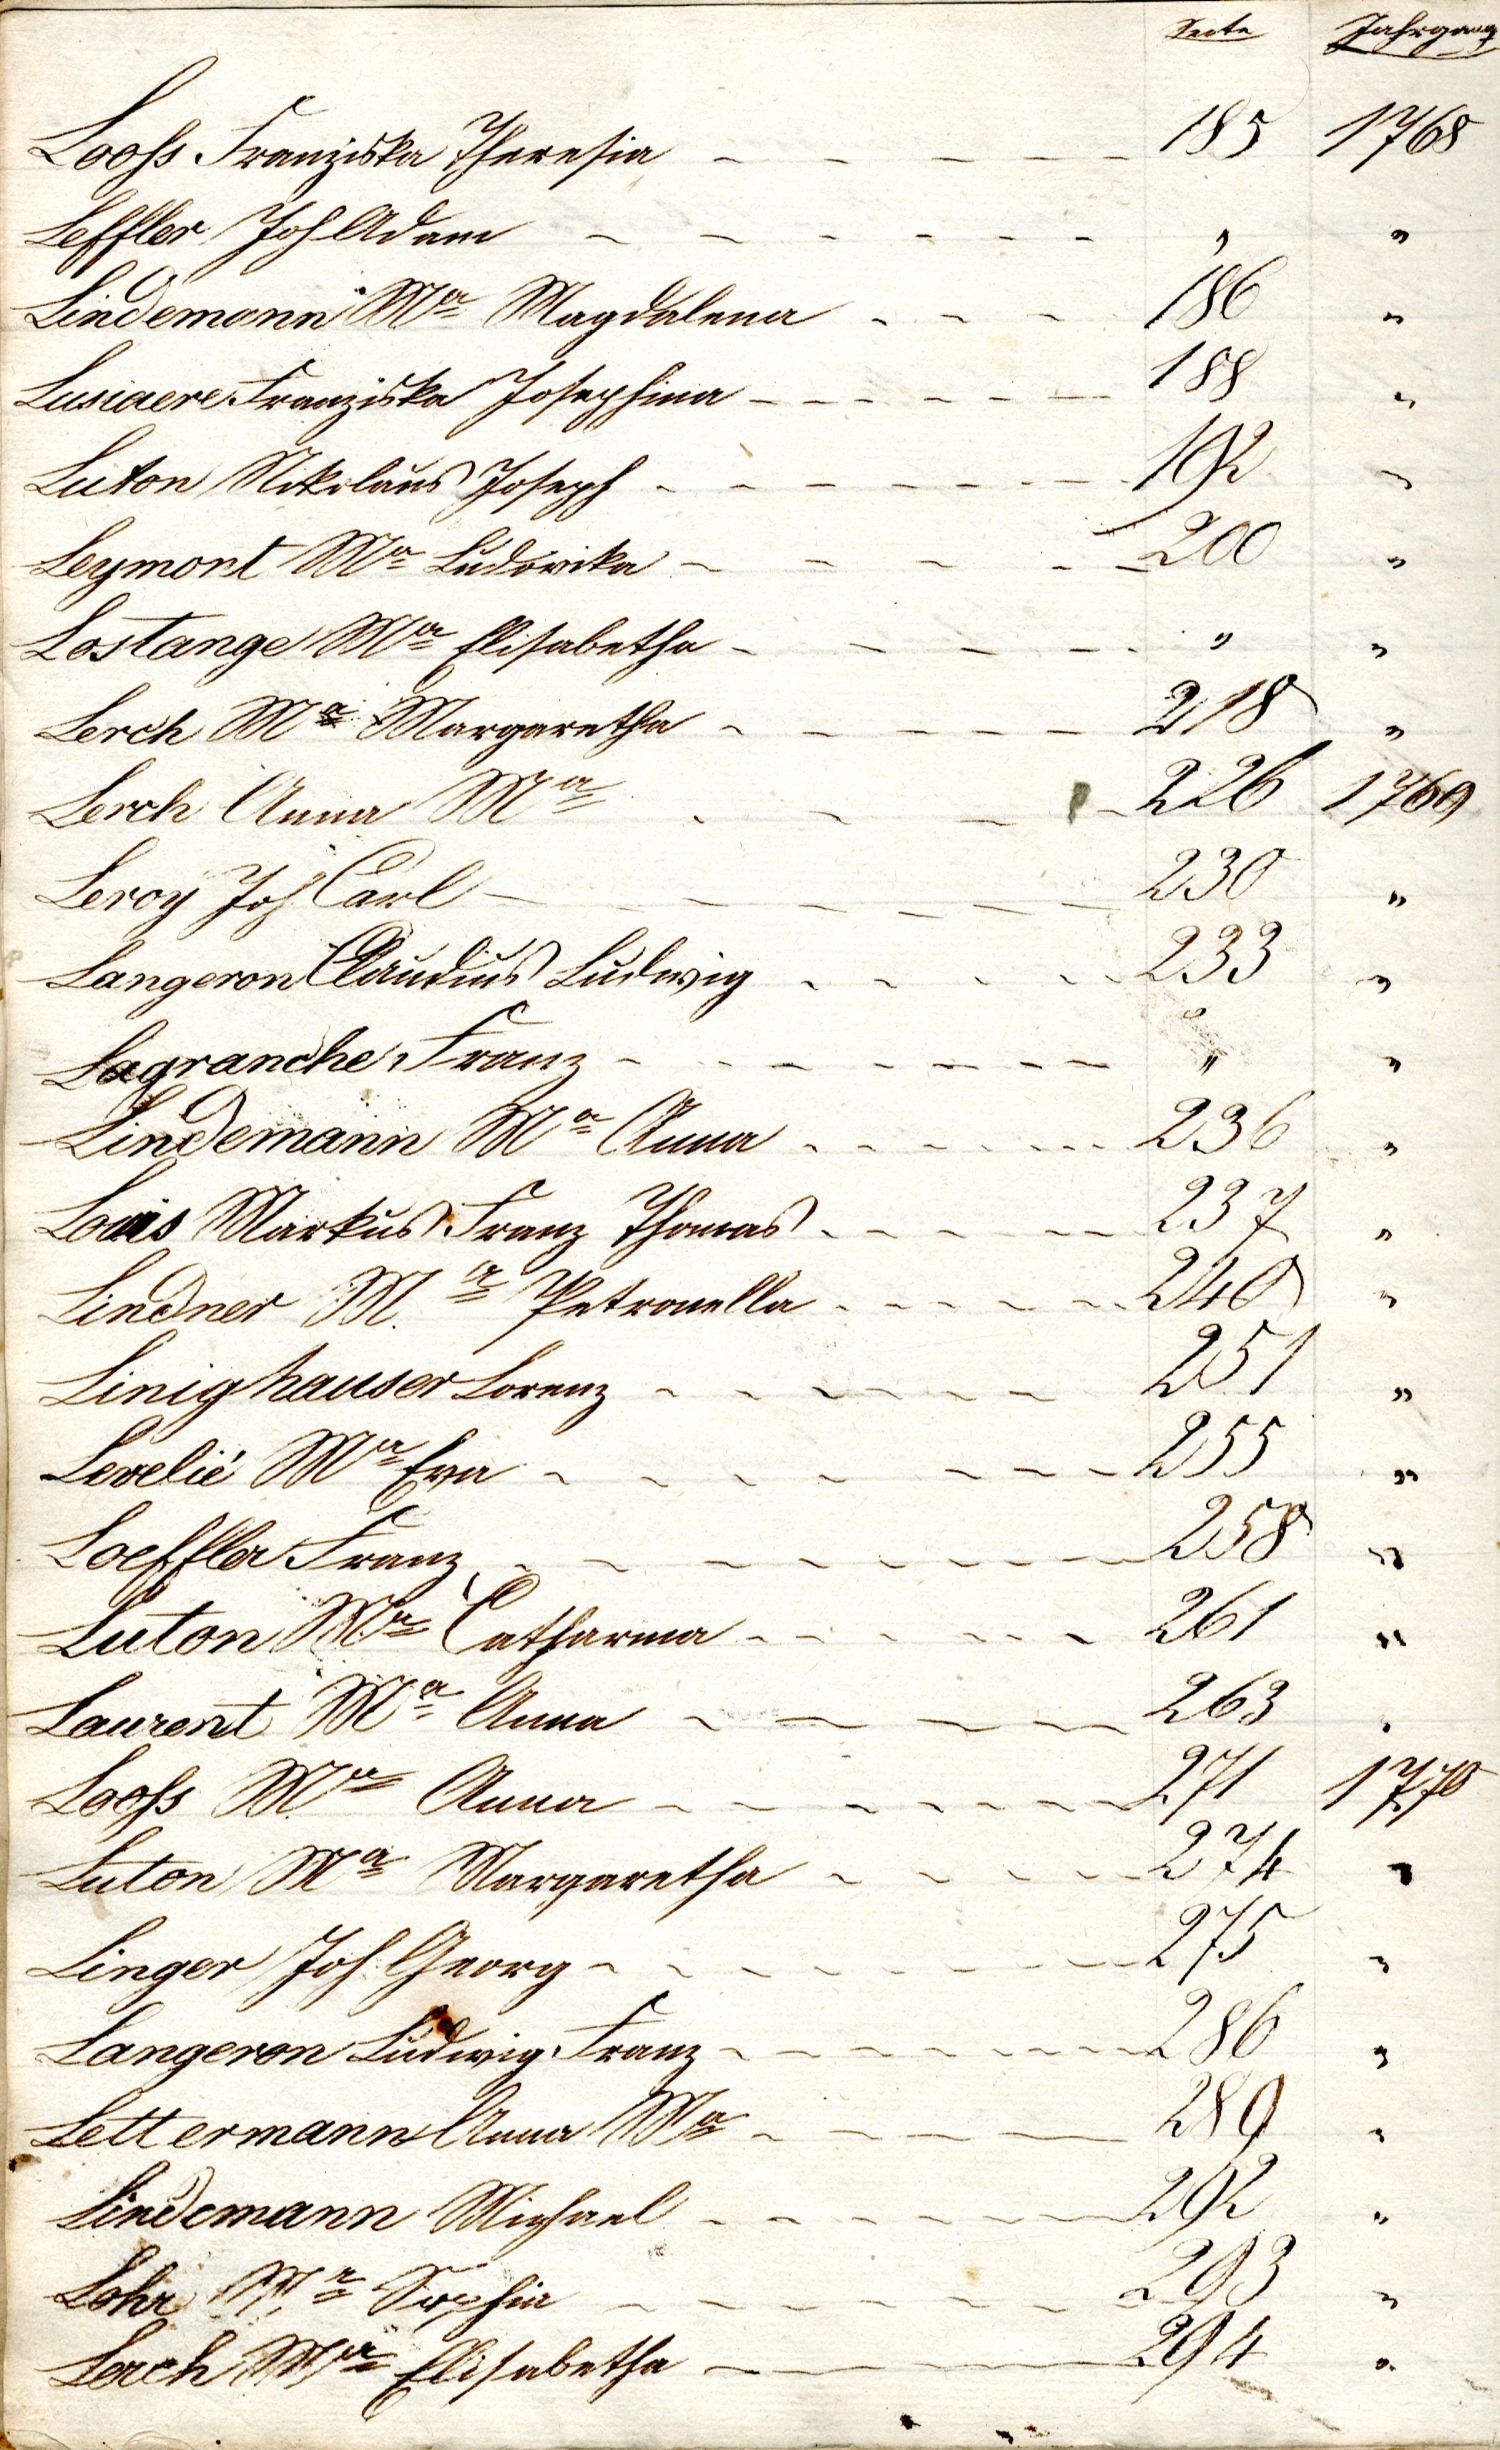 Seite Jahrgang
Looſs Franziska Theresia - - - - - 185 1768
Leffler Joh Adam - - - - - - „ „
Lindemann Mª Magdalena - - - 186 „
Lusiaere Franziska Josephina - - - - - - 188 „
Luton Nikolaus Joseph - - - - - - - 192 „
Leymont Mª Ludovika - - - - - 200 „
Lostange Mª Elisabetha - - - - - „ „
Lerch Mª Margaretha - - - - - - 218 „
Lerch Anna Mª - - - - 226 1769
Leroy Joh Carl - - - - - - 230 „
Langeron Claudius Ludwig - - - - - 233 „
Lagranche Franz - - - - - - - „ „
Lindemann Mª Anna - - - - - - 236 „
Louis Markus Franz Thomas - - - - - 237 „
Lindner M.ª Petronella - - - - - - 240 „
Linighauser Lorenz - - - - - - - 251 „
Levelié Mª Eva - - - - - - 255 „
Loeffler Franz - - - - - - - 258 „
Luton Mª Catharina - - - - - - 261 „
Laurent Mª Anna - - - - - 263 „
Looſs Mª Anna - - - - - - - 271 1770
Luton Mª Margaretha - - - - - 274 „
Linger Joh Georg - - - - - - - - 275 „
Langeron Ludwig Franz - - - - - - - 286 „
Lettermann Anna Mª - - - - - 289 „
Lindemann Michael - - - - - - - 292 „
Lohr Mª Sophia - - - - - - - 293 „
Lerch Mª Elisabetha - - - - 294 „